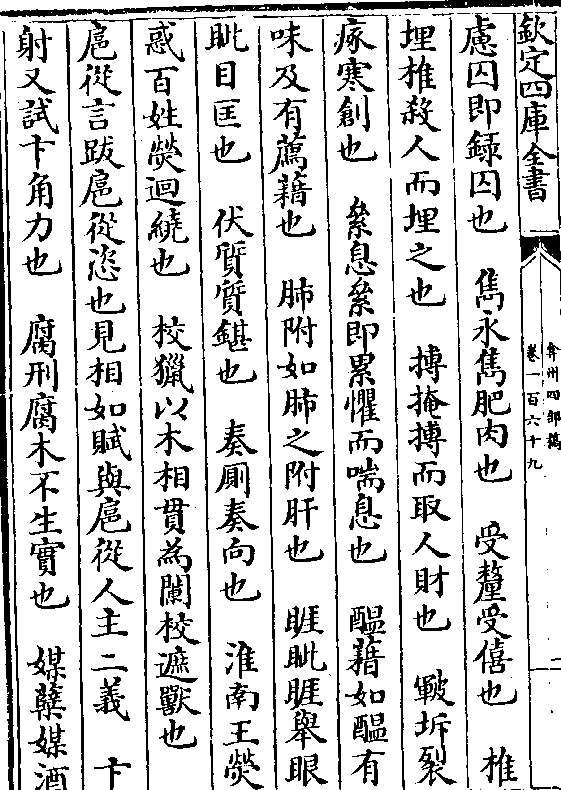 欽定四庫全書
弇州四部稿
卷一百六十九
慮囚即録囚也　雋永雋肥肉也　受釐受僖也　椎
埋椎殺人而埋之也　搏掩搏而取人財也　皸坼裂
瘃寒創也　絫息絫即累懼而喘息也　醖藉如醖有
味及有薦藉也　肺附如肺之附肝也　睚眦睚舉眼
眦目匡也　伏質質鍖也　奏厠奏向也　淮南王熒
惑百姓熒迴繞也　校獵以木相貫為闌校遮獸也
扈從言跋扈從恣也見相如賦與扈從人主二義　卞
射又試卞角力也　腐刑腐木不生實也　媒櫱媒酒